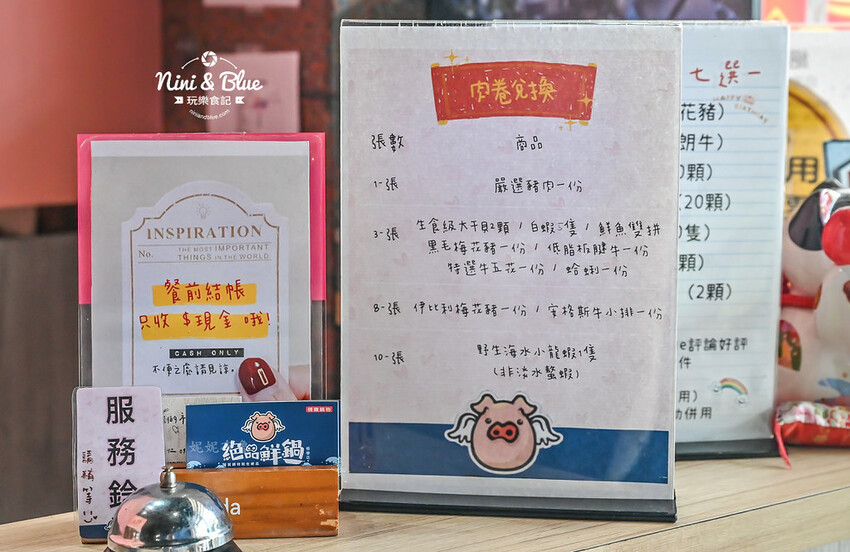 Nini & Blue
玩樂食記
niniandblue.com
INSPIRATION
No.
THE MOST IMPORTANT
THINGS IN THE WORLD
餐前結帳
只收 $現金 哦!
CASH ONLY
不便之處請見諒。
服務鈴
請稍等
妮妮
絕品鮮鍋
da
肉卷兌換
張數 商品
1-張 嚴選豬肉一份
3-張 生食級大干貝2顆 / 白蝦5隻 / 鮮魚雙拼
黑毛梅花豬一份 / 低脂板腱牛一份
特選牛五花一份 / 蛤蜊一份
8-張 伊比利梅花豬一份 / 安格斯牛小排一份
10-張 野生海水小龍蝦1隻
(非淡水螯蝦)
七選一
HAPPY
BIRTHDAY
花豬)
朗牛)
0顆)
(20顆)
0隻)
顆)
(2顆)
e評論好評
件
用)
併用
用